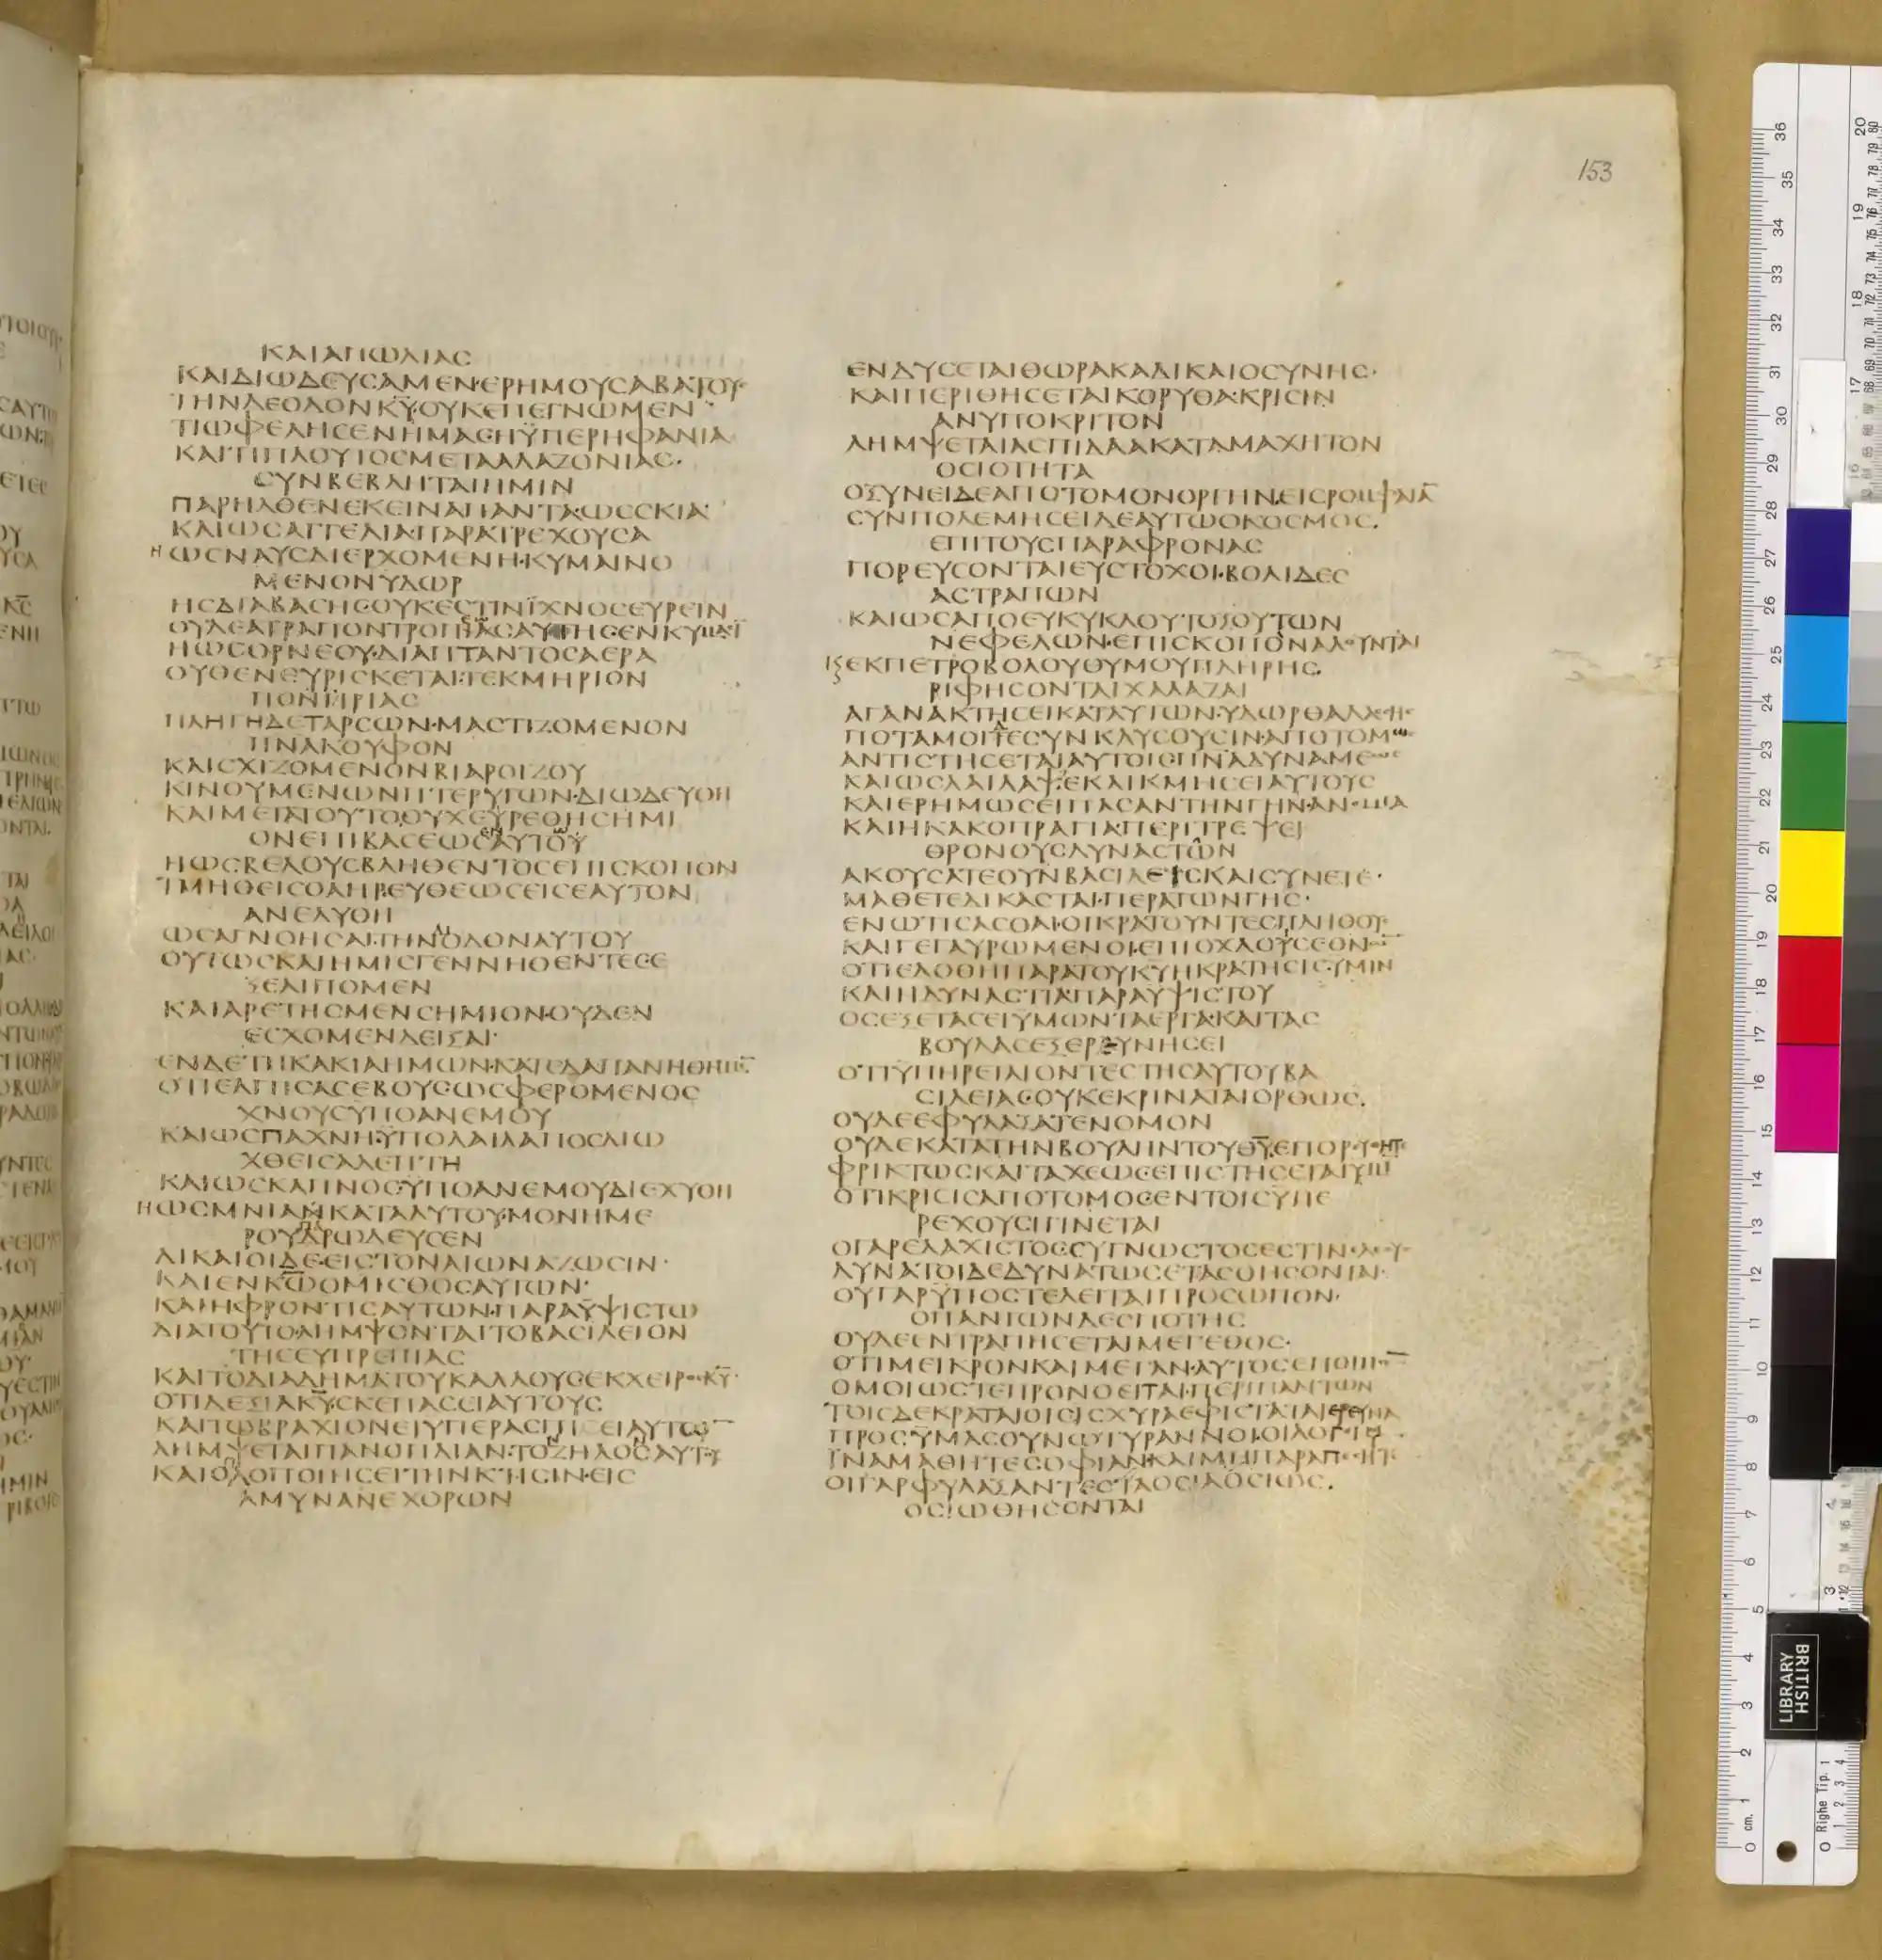 153
ΚΑΙΑΠΩΛΙΑΣ
ΚΑΙΔΙΩΔΕΥΣΑΜΕΝ·ΕΡΗΜΟΥΣΑΒΑΤΟΥΣ
ΤΗΝΔΕΟΔΟΝΚΥ·ΟΥΚΕΠΕΓΝΩΜΕΝ
ΤΙΩΦΕΛΗΣΕΝΗΜΑΣ·ΗΫΠΕΡΗΦΑΝΙΑ
ΚΑΙΤΙΠΛΟΥΤΟΣΜΕΤΑΑΛΑΖΟΝΙΑΣ·
ΣΥΝΒΕΒΛΗΤΑΙΗΜΙΝ
ΠΑΡΗΛΘΕΝΕΚΕΙΝΑΠΑΝΤΑ·ΩΣΣΚΙΑ
ΚΑΙΩΣΑΓΓΕΛΙΑ·ΠΑΡΑΤΡΕΧΟΥΣΑ
ΗΩΣΝΑΥΣΔΙΕΡΧΟΜΕΝΗ·ΚΥΜΑΙΝΟ
ΜΕΝΟΝΥΔΩΡ
ΗΣΔΙΑΒΑΣΗΣ·ΟΥΚΕΣΤΙΝΪΧΝΟΣΕΥΡΕΙΝ
ΟΥΔΕΑΤΡΑΠΟΝΤΡΟΠΙΑΣΑΥΤΗΣ·ΕΝΚΥΜΑΣΙ
ΗΩΣΟΡΝΕΟΥ·ΔΙΑΠΤΑΝΤΟΣΑΕΡΑ
ΟΥΘΕΝΕΥΡΙΣΚΕΤΑΙ·ΤΕΚΜΗΡΙΟΝ
ΠΟΝΗΡΙΑΣ
ΠΛΗΓΗΔΕΤΑΡΣΩΝ·ΜΑΣΤΙΖΟΜΕΝΟΝ
ΠΝΑΚΟΥΦΟΝ
ΚΑΙΣΧΙΖΟΜΕΝΟΝΒΙΑΡΟΙΖΟΥ
ΚΙΝΟΥΜΕΝΩΝΠΤΕΡΥΓΩΝ·ΔΙΩΔΕΥΘΗ
ΚΑΙΜΕΤΑΤΟΥΤΟΟΥΧΕΥΡΕΘΗΣΗΜΙ
ΟΝΕΠΙΒΑΣΕΩΣΕΝΑΥΤΩ
ΗΩΣΒΕΛΟΥΣΒΛΗΘΕΝΤΟΣΕΠΙΣΚΟΠΟΝ
ΤΜΗΘΕΙΣΟΑΗΡ·ΕΥΘΕΩΣΕΙΣΕΑΥΤΟΝ
ΑΝΕΛΥΘΗ
ΩΣΑΓΝΟΗΣΑΙ·ΤΗΝΔΙΟΔΟΝΑΥΤΟΥ
ΟΥΤΩΣΚΑΙΗΜΙΣΓΕΝΝΗΘΕΝΤΕΣ·Ε
ΞΕΛΙΠΟΜΕΝ
ΚΑΙΑΡΕΤΗΣΜΕΝΣΗΜΙΟΝ·ΟΥΔΕΝ
ΕΣΧΟΜΕΝΔΕΙΞΑΙ·
ΕΝΔΕΤΗΚΑΚΙΑΗΜΩΝ·ΚΑΤΕΔΑΠΑΝΗΘΗΜΕ
ΟΤΙΕΛΠΙΣΑΣΕΒΟΥΣ·ΩΣΦΕΡΟΜΕΝΟΣ
ΧΝΟΥΣΥΠΟΑΝΕΜΟΥ
ΚΑΙΩΣΠΑΧΝΗ·ΫΠΟΛΑΙΛΑΠΟΣΔΙΩ
ΧΘΕΙΣΑΛΕΠΤΗ
ΚΑΙΩΣΚΑΠΝΟΣ·ΥΠΟΑΝΕΜΟΥΔΙΕΧΥΘΗ
ΗΩΣΜΝΙΑΝΚΑΤΑΛΥΤΟΥ·ΜΟΝΗΜΕ
ΡΟΥΠΑΡΩΔΕΥΣΕΝ
ΔΙΚΑΙΟΙΔΕ·ΕΙΣΤΟΝΑΙΩΝΑΖΩΣΙΝ·
ΚΑΙΕΝΚΩΟΜΙΣΘΟΣΑΥΤΩΝ·
ΚΑΙΗΦΡΟΝΤΙΣΑΥΤΩΝ·ΠΑΡΑΫΨΙΣΤΩ
ΔΙΑΤΟΥΤΟ·ΛΗΜΨΟΝΤΑΙΤΟΒΑΣΙΛΕΙΟΝ
ΤΗΣΕΥΠΡΕΠΙΑΣ
ΚΑΙΤΟΔΙΑΔΗΜΑΤΟΥΚΑΛΛΟΥΣ·ΕΚΧΕΙΡΟΣΚΥ·
ΟΤΙΔΕΞΙΑΚΥ·ΣΚΕΠΑΣΕΙΑΥΤΟΥΣ
ΚΑΙΤΩΒΡΑΧΙΟΝΕΙΥΠΕΡΑΣΠΙΕΙΑΥΤΩ
ΛΗΜΨΕΤΑΙΠΑΝΟΠΛΙΑΝ·ΤΟΝΖΗΛΟΝΑΥΤΟΥ
ΚΑΙΟΠΛΟΠΟΙΗΣΕΙΤΗΝΚΤΗΣΙΝ·ΕΙΣ
ΑΜΥΝΑΝΕΧΘΡΩΝ
ΕΝΔΥΣΕΤΑΙΘΩΡΑΚΑΔΙΚΑΙΟΣΥΝΗΣ·
ΚΑΙΠΕΡΙΘΗΣΕΤΑΙΚΟΡΥΘΑ·ΚΡΙΣΙΝ
ΑΝΥΠΟΚΡΙΤΟΝ
ΛΗΜΨΕΤΑΙΑΣΠΙΔΑΑΚΑΤΑΜΑΧΗΤΟΝ
ΟΣΙΟΤΗΤΑ
ΟΞΥΝΕΙΔΕΑΠΟΤΟΜΟΝΟΡΓΗΝ·ΕΙΣΡΟΜΦΑΙΑ
ΣΥΝΠΟΛΕΜΗΣΕΙΔΕΑΥΤΩΟΚΟΣΜΟΣ·
ΕΠΙΤΟΥΣΠΑΡΑΦΡΟΝΑΣ
ΠΟΡΕΥΣΟΝΤΑΙΕΥΣΤΟΧΟΙ·ΒΟΛΙΔΕΣ
ΑΣΤΡΑΠΩΝ
ΚΑΙΩΣΑΠΟΕΥΚΥΚΛΟΥΤΟΞΟΥΤΩΝ
ΝΕΦΕΛΩΝ·ΕΠΙΣΚΟΠΟΝΑΛΟΥΝΤΑΙ
ΚΕΚΠΕΤΡΟΒΟΛΟΥΘΥΜΟΥΠΛΗΡΗΣ
ΡΙΦΗΣΟΝΤΑΙΧΑΛΑΖΑΙ
ΑΓΑΝΑΚΤΗΣΕΙΚΑΤΑΥΤΩΝ·ΥΔΩΡΘΑΛΑΣΣΗΣ
ΠΟΤΑΜΟΙΤΕΣΥΝΚΛΥΣΟΥΣΙΝ·ΑΠΟΤΟΜΩΣ
ΑΝΤΙΣΤΗΣΕΤΑΙΑΥΤΟΙΣΠΝΑΔΥΝΑΜΕΩΣ
ΚΑΙΩΣΛΑΙΛΑΨ·ΕΚΛΙΚΜΗΣΕΙΑΥΤΟΥΣ
ΚΑΙΕΡΗΜΩΣΕΙΠΑΣΑΝΤΗΝΓΗΝ·ΑΝΟΜΙΑ
ΚΑΙΗΚΑΚΟΠΡΑΓΙΑΠΕΡΙΤΡΕΨΕΙ
ΘΡΟΝΟΥΣΔΥΝΑΣΤΩΝ
ΑΚΟΥΣΑΤΕΟΥΝΒΑΣΙΛΕΙΣΚΑΙΣΥΝΕΤΕ·
ΜΑΘΕΤΕΔΙΚΑΣΤΑΙ·ΠΕΡΑΤΩΝΓΗΣ·
ΕΝΩΤΙΣΑΣΘΑΙ·ΟΙΚΡΑΤΟΥΝΤΕΣΠΛΗΘΟΥΣ
ΚΑΙΓΕΓΑΥΡΩΜΕΝΟΙ·ΕΠΙΟΧΛΟΥΣΕΘΝΩΝ
ΟΤΙΕΔΟΘΗΠΑΡΑΤΟΥΚΥΗΚΡΑΤΗΣΙΣ·ΥΜΙΝ
ΚΑΙΗΔΥΝΑΣΤΙΑΠΑΡΑΥΨΙΣΤΟΥ
ΟΣΕΞΕΤΑΣΕΙΥΜΩΝΤΑΕΡΓΑ·ΚΑΙΤΑΣ
ΒΟΥΛΑΣΕΞΕΡΕΥΝΗΣΕΙ
ΟΤΙΥΠΗΡΕΤΑΙΟΝΤΕΣΤΗΣΑΥΤΟΥΒΑ
ΣΙΛΕΙΑΣ·ΟΥΚΕΚΡΙΝΑΤΑΙΟΡΘΩΣ·
ΟΥΔΕΕΦΥΛΑΞΑΤΕΝΟΜΟΝ
ΟΥΔΕΚΑΤΑΤΗΝΒΟΥΛΗΝΤΟΥΘΥ·ΕΠΟΡΕΥΘΗΤΕ
ΦΡΙΚΤΩΣΚΑΙΤΑΧΕΩΣΕΠΙΣΤΗΣΕΤΑΙΥΜΙ
ΟΤΙΚΡΙΣΙΣΑΠΟΤΟΜΟΣΕΝΤΟΙΣΥΠΕ
ΡΕΧΟΥΣΙΓΙΝΕΤΑΙ
ΟΓΑΡΕΛΑΧΙΣΤΟΣ·ΣΥΓΝΩΣΤΟΣΕΣΤΙΝ·ΕΛΕΟΥΣ
ΔΥΝΑΤΟΙΔΕΔΥΝΑΤΩΣΕΤΑΣΘΗΣΟΝΤΑΙ·
ΟΥΓΑΡΫΠΟΣΤΕΛΕΙΤΑΙΠΡΟΣΩΠΟΝ·
ΟΠΑΝΤΩΝΔΕΣΠΟΤΗΣ
ΟΥΔΕΕΝΤΡΑΠΗΣΕΤΑΙΜΕΓΕΘΟΣ·
ΟΤΙΜΕΙΚΡΟΝΚΑΙΜΕΓΑΝ·ΑΥΤΟΣΕΠΟΙΗΣΕ
ΟΜΟΙΩΣΤΕΠΡΟΝΟΕΙΤΑΙ·ΠΕΡΙΠΑΝΤΩΝ
ΤΟΙΣΔΕΚΡΑΤΑΙΟΙΣΙΣΧΥΡΑΕΦΙΣΤΑΤΑΙΕΡΕΥΝΑ
ΠΡΟΣΫΜΑΣΟΥΝΩΤΥΡΑΝΝΟΙ·ΟΙΛΟΓΟΙΜΟΥ
ΪΝΑΜΑΘΗΤΕΣΟΦΙΑΝ·ΚΑΙΜΗΠΑΡΑΠΕΣΗΤΕ
ΟΙΓΑΡΦΥΛΑΞΑΝΤΕΣΤΑΟΣΙΑΟΣΙΩΣ·
ΟΣΙΩΘΗΣΟΝΤΑΙ
BRITISH
LIBRARY